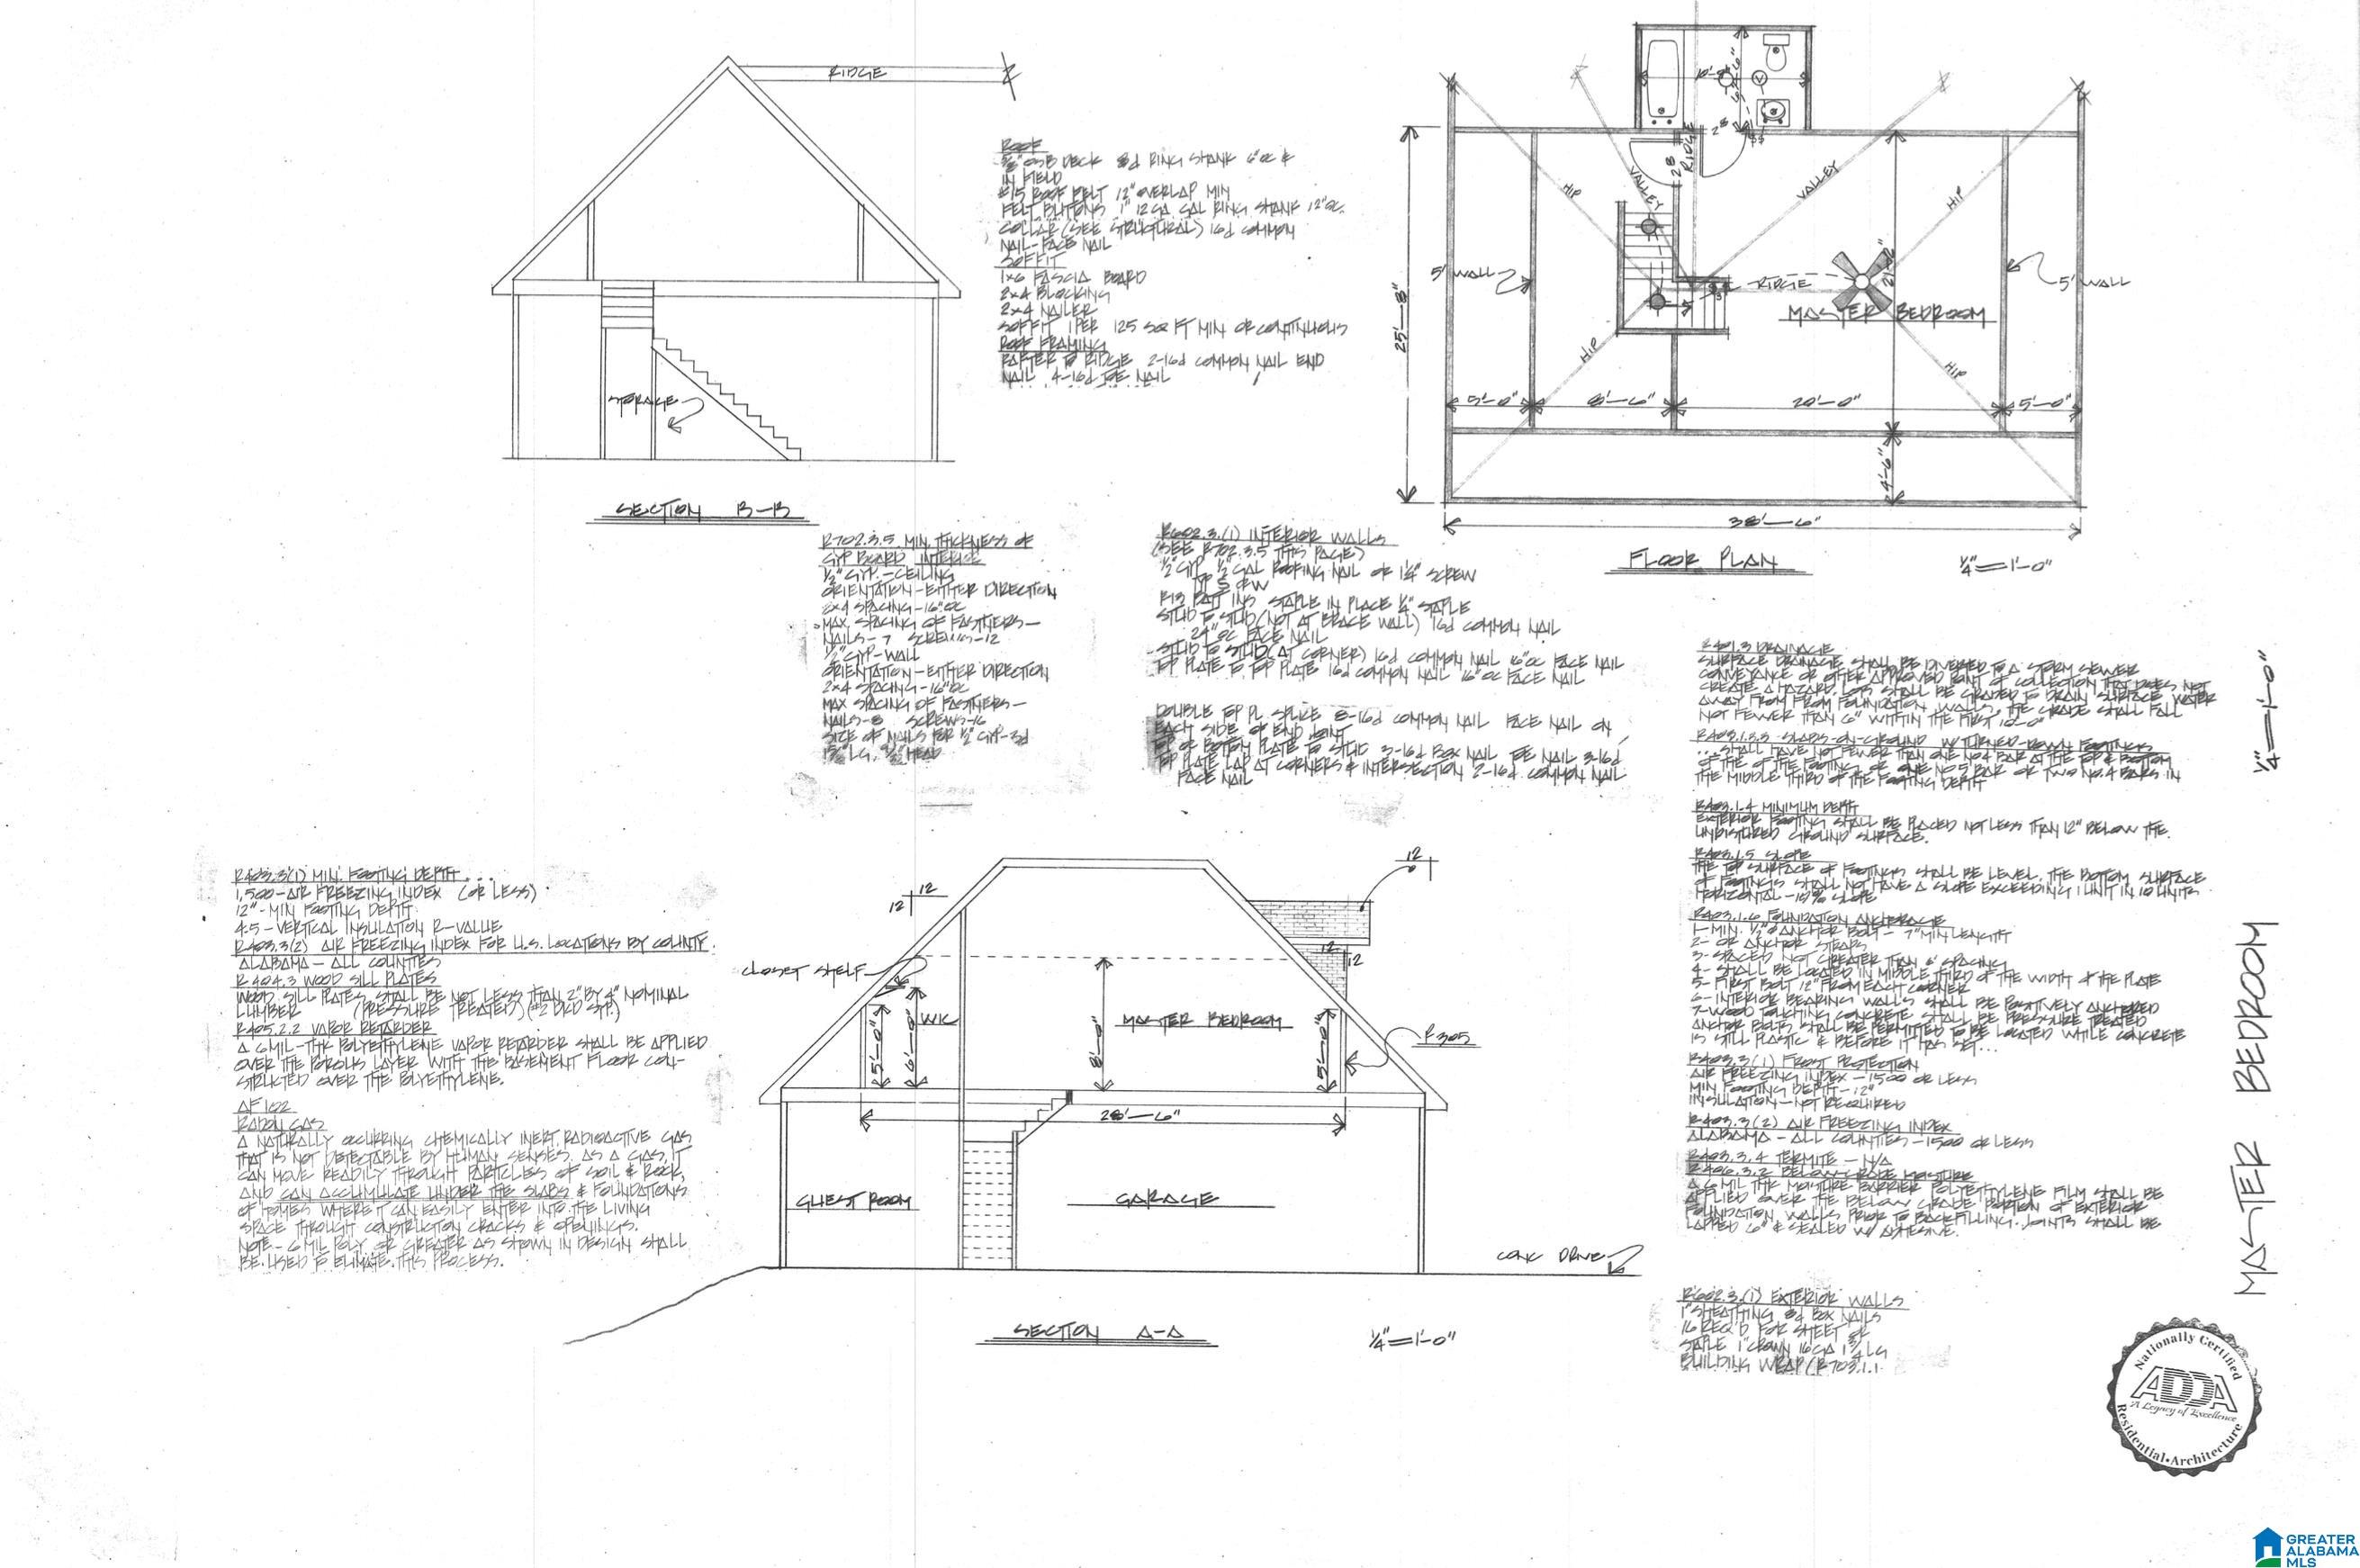 RIDGE
ROOF
5/8" OSB DECK 8d RING SHANK 6"OC &
IN FIELD
#15 ROOF FELT 12" OVERLAP MIN
FELT BUTTONS 1" 12GA GAL RING SHANK 12"OC
COLLAR (SEE STRUCTURAL) 16d COMMON
NAIL-FACE NAIL
SOFFIT
1x6 FASCIA BOARD
2x4 BLOCKING
2x4 NAILER
SOFFIT 1 PER 125 SQ FT MIN OR CONTINUOUS
ROOF FRAMING
RAFTER TO RIDGE 2-16d COMMON NAIL END
NAIL 4-16d TOE NAIL
STORAGE
SECTION B-B
28
28
RIDGE
VALLEY
VALLEY
HIP
HIP
5' WALL
RIDGE
5' WALL
MASTER BEDROOM
HIP
HIP
25'-8"
5'-0"
8'-6"
20'-0"
5'-0"
4'-6"
38'-6"
FLOOR PLAN
1/4"=1'-0"
R702.3.5 MIN. THICKNESS OF
GYP BOARD INTERIOR
1/2" GYP.-CEILING
ORIENTATION-EITHER DIRECTION
2x4 SPACING-16"OC
MAX. SPACING OF FASTNERS-
NAILS-7 SCREWS-12
1/2" GYP-WALL
ORIENTATION-EITHER DIRECTION
2x4 SPACING-16"OC
MAX SPACING OF FASTNERS-
NAILS-8 SCREWS-16
SIZE OF NAILS FOR 1/2" GYP-3d
LG, HEAD
R602.3.(1) INTERIOR WALLS
(SEE R702.3.5 THIS PAGE)
1/2" GYP 1/2" GAL ROOFING NAIL OR 1 1/4" SCREW
TYP S OR W
R13 BATT INS STAPLE IN PLACE 1/4" STAPLE
STUD TO STUD (NOT AT BRACE WALL) 16d COMMON NAIL
24"OC FACE NAIL
STUD TO STUD (AT CORNER) 16d COMMON NAIL 16"OC FACE NAIL
TOP PLATE TO TOP PLATE 16d COMMON NAIL 16"OC FACE NAIL
DOUBLE TOP PL SPLICE 8-16d COMMON NAIL FACE NAIL ON
EACH SIDE OF END JOINT
TOP OR BOTTOM PLATE TO STUD 3-16d BOX NAIL TOE NAIL 3-16d
TOP PLATE LAP AT CORNERS & INTERSECTION 2-16d COMMON NAIL
FACE NAIL
R401.3 DRAINAGE
SURFACE DRAINAGE SHALL BE DIVERED TO A STORM SEWER
CONVEYANCE OR OTHER APPROVED POINT OF COLLECTION THAT DOES NOT
CREATE A HAZARD. LOTS SHALL BE GRADED TO DRAIN SURFACE WATER
AWAY FROM FROM FOUNDATION WALLS. THE GRADE SHALL FALL
NOT FEWER THAN 6" WITHIN THE FIRST 10'-0"
R403.1.3.3 SLABS-ON-GROUND W/ TURNED-DOWN FOOTINGS
...SHALL HAVE NOT FEWER THAN ONE NO4 BAR AT THE TOP & BOTTOM
OF THE OF THE FOOTING OR ONE NO.5 BAR OR TWO NO.4 BARS IN
THE MIDDLE THIRD OF THE FOOTING DEPTH
R403.1.4 MINIMUM DEPTH
EXTERIOR FOOTING SHALL BE PLACED NOT LESS THAN 12" BELOW THE
UNDISTURED GROUND SURFACE.
R403.1.5 SLOPE
THE TOP SURFACE OF FOOTINGS SHALL BE LEVEL. THE BOTTOM SURFACE
OF FOOTINGS SHALL NOT HAVE A SLOPE EXCEEDING 1 UNIT IN 10 UNITS
HORIZONTAL-10% SLOPE
R403.1.6 FOUNDATION ANCHORAGE
1-MIN. 1/2"Ø ANCHOR BOLT- 7" MIN LENGTH
2- OR ANCHOR STRAPS
3-SPACED NOT GREATER THAN 6' SPACING
4-SHALL BE LOCATED IN MIDDLE THIRD OF THE WIDTH OF THE PLATE
5-FIRST BOLT 12" FROM EACH CORNER
6-INTERIOR BEARING WALLS SHALL BE POSITIVELY ANCHORED
7-WOOD TOUCHING CONCRETE SHALL BE PRESSURE TREATED
ANCHOR BOLTS SHALL BE PERMITTED TO BE LOCATED WHILE CONCRETE
IS STILL PLASTIC & BEFORE IT HAS SET...
R403.3(1) FROST PROTECTION
AIR FREEZING INDEX-1500 OR LESS
MIN FOOTING DEPTH-12"
INSULATION-NOT REQUIRED
R403.3(2) AIR FREEZING INDEX
ALABAMA-ALL COUNTIES-1500 OR LESS
R403.3.4 TERMITE-N/A
R406.3.2 BELOW GRADE MOISTURE
A 6 MIL THK MOISTURE BARRIER POLYETHYLENE FILM SHALL BE
APPLIED OVER THE BELOW GRADE PORTION OF EXTERIOR
FOUNDATION WALLS PRIOR TO BACKFILLING. JOINTS SHALL BE
LAPPED 6" & SEALED W/ ADHESIVE.
R602.3.(1) EXTERIOR WALLS
1" SHEATHING 8d BOX NAILS
16 REQ'D FOR SHEET OR
STAPLE 1" CROWN 16GA 1 3/4 LG
BUILDING WRAP (R703.1.1
1/4"=1'-0"
MASTER BEDROOM
R403.3(1) MIN. FOOTING DEPTH...
1,500-AIR FREEZING INDEX (OR LESS)
12"-MIN FOOTING DEPTH
4.5-VERTICAL INSULATION R-VALUE
R403.3(2) AIR FREEZING INDEX FOR U.S. LOCATIONS BY COUNTY.
ALABAMA-ALL COUNTIES
R404.3 WOOD SILL PLATES
WOOD SILL PLATES SHALL BE NOT LESS THAN 2" BY 4" NOMINAL
LUMBER (PRESSURE TREATED)
R405.2.2 VAPOR RETARDER
A 6 MIL-THK POLYETHYLENE VAPOR RETARDER SHALL BE APPLIED
OVER THE POROUS LAYER WITH THE BASEMENT FLOOR CON-
STRUCTED OVER THE POLYETHYLENE.
AF102
RADON GAS
A NATURALLY OCCURRING CHEMICALLY INERT, RADIOACTIVE GAS
THAT IS NOT DETECTABLE BY HUMAN SENSES. AS A GAS, IT
CAN MOVE READILY THROUGH PARTICLES OF SOIL & ROCK,
AND CAN ACCUMULATE UNDER THE SLABS & FOUNDATIONS
OF HOMES WHERE IT CAN EASILY ENTER INTO THE LIVING
SPACE THROUGH CONSTRUCTION CRACKS & OPENINGS.
NOTE-6 MIL POLY OR GREATER AS SHOWN IN DESIGN SHALL
BE USED TO ELIMATE THIS PROCESS.
12
12
12
CLOSET SHELF
12
12
5'-0"
6'-0"
WIC
8'-0"
MASTER BEDROOM
5'-0"
R305
28'-6"
GUEST ROOM
GARAGE
CONC DRIVE
SECTION A-A
1/4"=1'-0"
Nationally Certified
ADDA
A Legacy of Excellence
Residential•Architecture
GREATER
ALABAMA
MLS